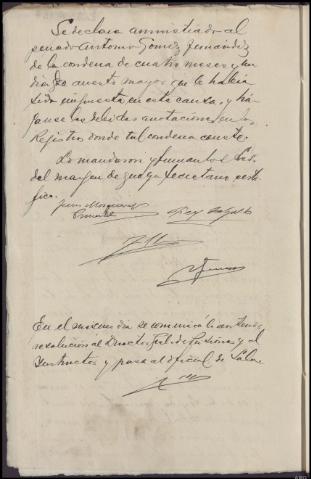 Se declara amnistiado al
penado Antonio Gomez Fernandez
de la condena de cuatro meses y un
dia de arresto mayor que le habia
sido impuesta en esta causa, y há-
ganse las debidas anotaciones en los
Registros donde tal condena conste.
Lo mandaron y firman los Sres.
del margen de que yo Secretario certi-
fico.
En el mismo dia se comunicó la anterior
resolucion al Director Gral. de Prisiones y al
Instructor y pasa al oficial de Sala